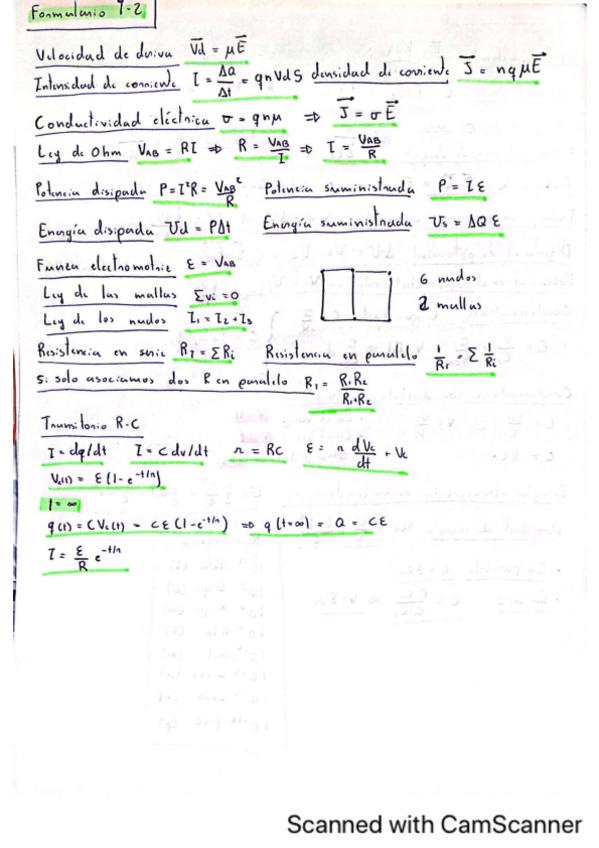 Formulario T-2
Velocidad de deriva V⃗d = μE⃗
Intensidad de corriente I = ΔQ/Δt = qnVdS densidad de corriente J⃗ = nqμE⃗
Conductividad eléctrica σ = qnμ ⇒ J⃗ = σE⃗
Ley de Ohm VAB = RI ⇒ R = VAB/I ⇒ I = VAB/R
Potencia disipada P = I²R = VAB²/R Potencia suministrada P = Iε
Energía disipada Ud = PΔt Energía suministrada Us = ΔQ ε
Fuerza electromotriz ε = VAB
Ley de las mallas Σvi = 0
Ley de los nudos I₁ = I₂ + I₃
6 nudos
2 mallas
Resistencia en serie RT = ΣRi Resistencia en paralelo 1/RT = Σ 1/Ri
Si solo asociamos dos R en paralelo RT = R₁R₂/R₁+R₂
Transitorio R-C
I = dq/dt I = C dv/dt τ = RC ε = τ dVc/dt + Vc
Vc(t) = ε(1-e^-t/τ)
t = ∞
q(t) = CVc(t) = Cε(1-e^-t/τ) ⇒ q(t=∞) = Q = Cε
I = ε/R e^-t/τ
Scanned with CamScanner